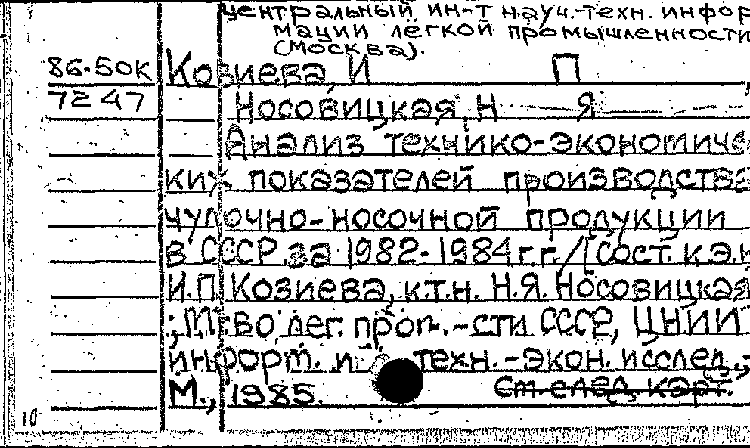 центральный ин-т науч.-техн. инфор
мации легкой промышленности
(Москва).
86-50К Козиева, И П
7247 Носовицкая, Н Я
Анализ технико-экономичес
ких показателей производства
чулочно-носочной продукции
в СССР за 1982-1984 г.г./[Сост. к.э.н.
И.П. Козиева, к.т.н. Н.Я. Носовицкая
; М-во лег. пром.-сти СССР, ЦНИИ
информ. и техн.-экон. исслед.,
М., 1985. См. след. карт.
10